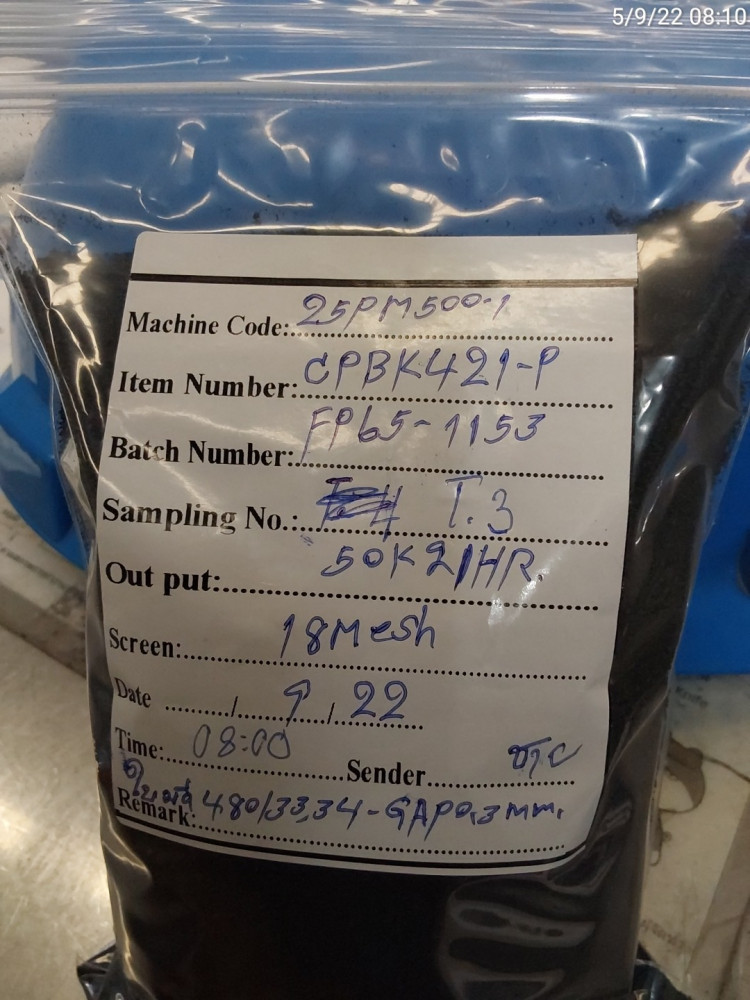 5/9/22 08:10
Machine Code: 25PM500-1
Item Number: CPBK421-P
Batch Number: FP65-1153
Sampling No.: T.3
Out put: 50K21HR.
Screen: 18Mesh
Date / 9 / 22
Time: 08:00 Sender
Remark: 480/33,34-GAP0.3mm.